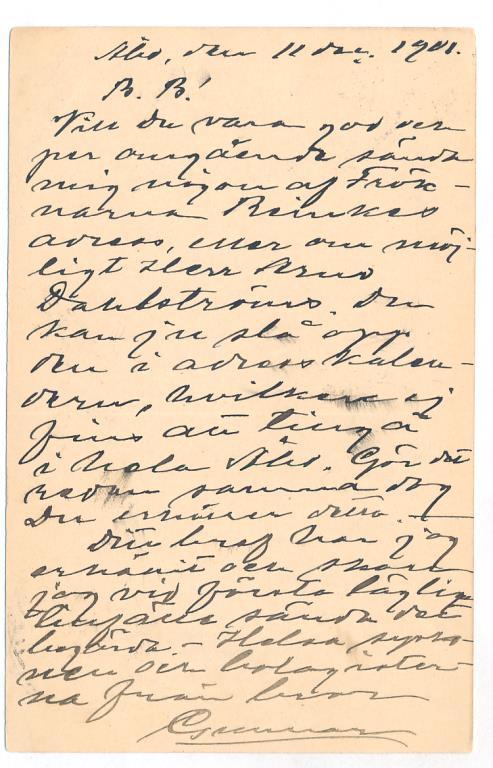 Åbo, den 11 dec. 1901.
B. B!
Vill Du vara god och
per omgående sända
mig någon af Frök-
narna Reinkes
adress, eller om möj-
ligt Herr Arno
Dahlströms. Du
kan ju slå opp
den i adresskalen-
dern, hvilken ej
fins att tingå
i hela Åbo. Gör det
redan samma dag
Du erhåller detta. –
Ditt bref har jag
erhållit och skall
jag vid första läglig
tillfälle sända det
begärda. – Helsa sysko-
nen och
na från bror
Gunnar